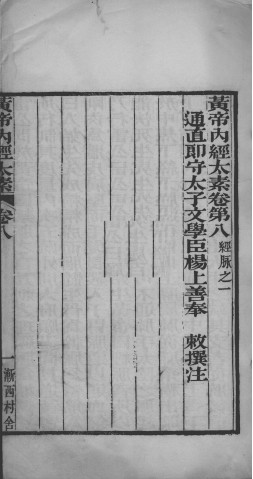 黃帝內經太素卷第八 經脈之一
通直郎守太子文學臣楊上善奉 敕撰注
黃帝內經太素 卷八 一 漸西村舍